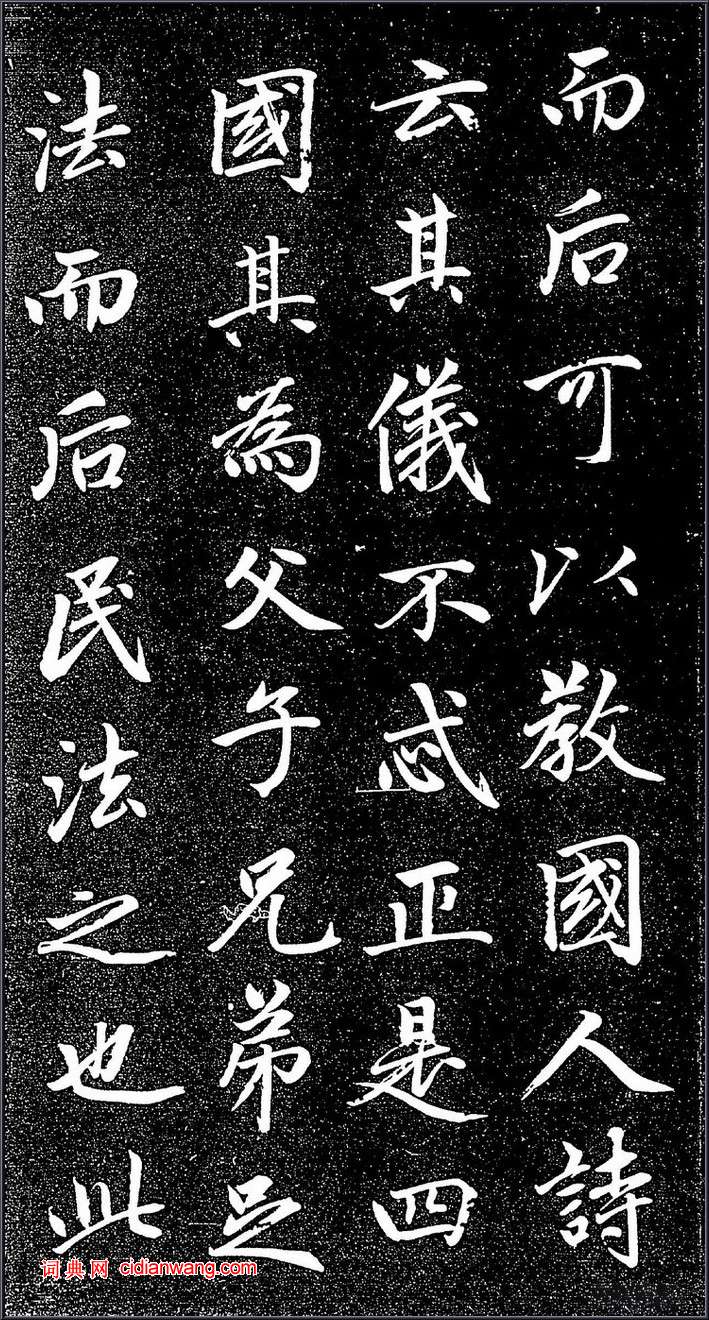 而后可以教國人詩
云其儀不忒正是四
國其為父子兄弟足
法而后民法之也此
词典网 cidianwang.com